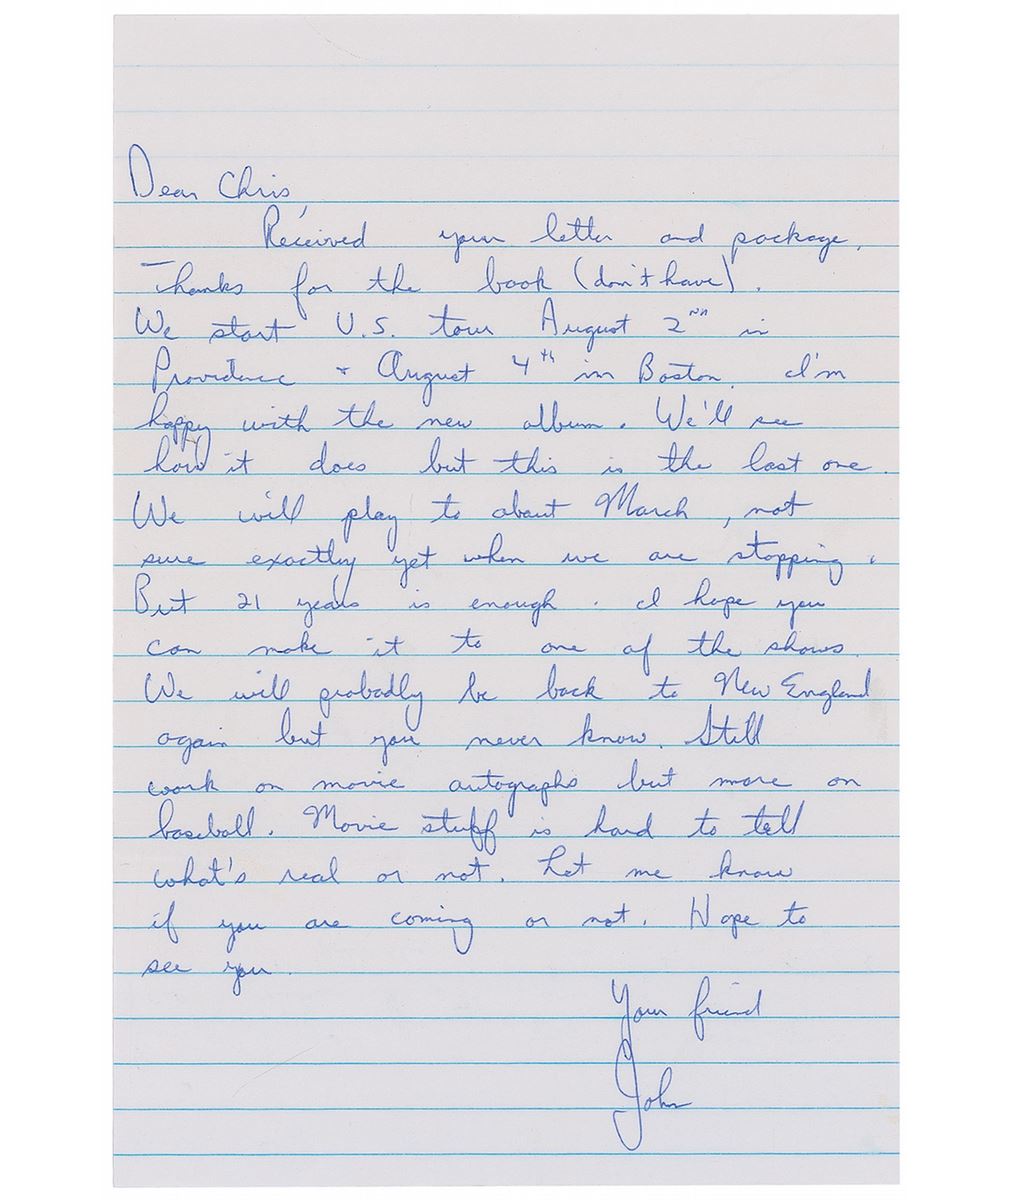 Dear Chris,
Received your letter and package.
Thanks for the book (don't have).
We start U.S. tour August 2nd in
Providence + August 4th in Boston. I'm
happy with the new album. We'll see
how it does but this is the last one.
We will play to about March, not
sure exactly yet when we are stopping.
But 21 years is enough. I hope you
can make it to one of the shows.
We will probadly be back to New England
again but you never know. Still
work on movie autographs but more on
baseball. Movie stuff is hard to tell
what's real or not. Let me know
if you are coming or not. Hope to
see you.
Your friend
John